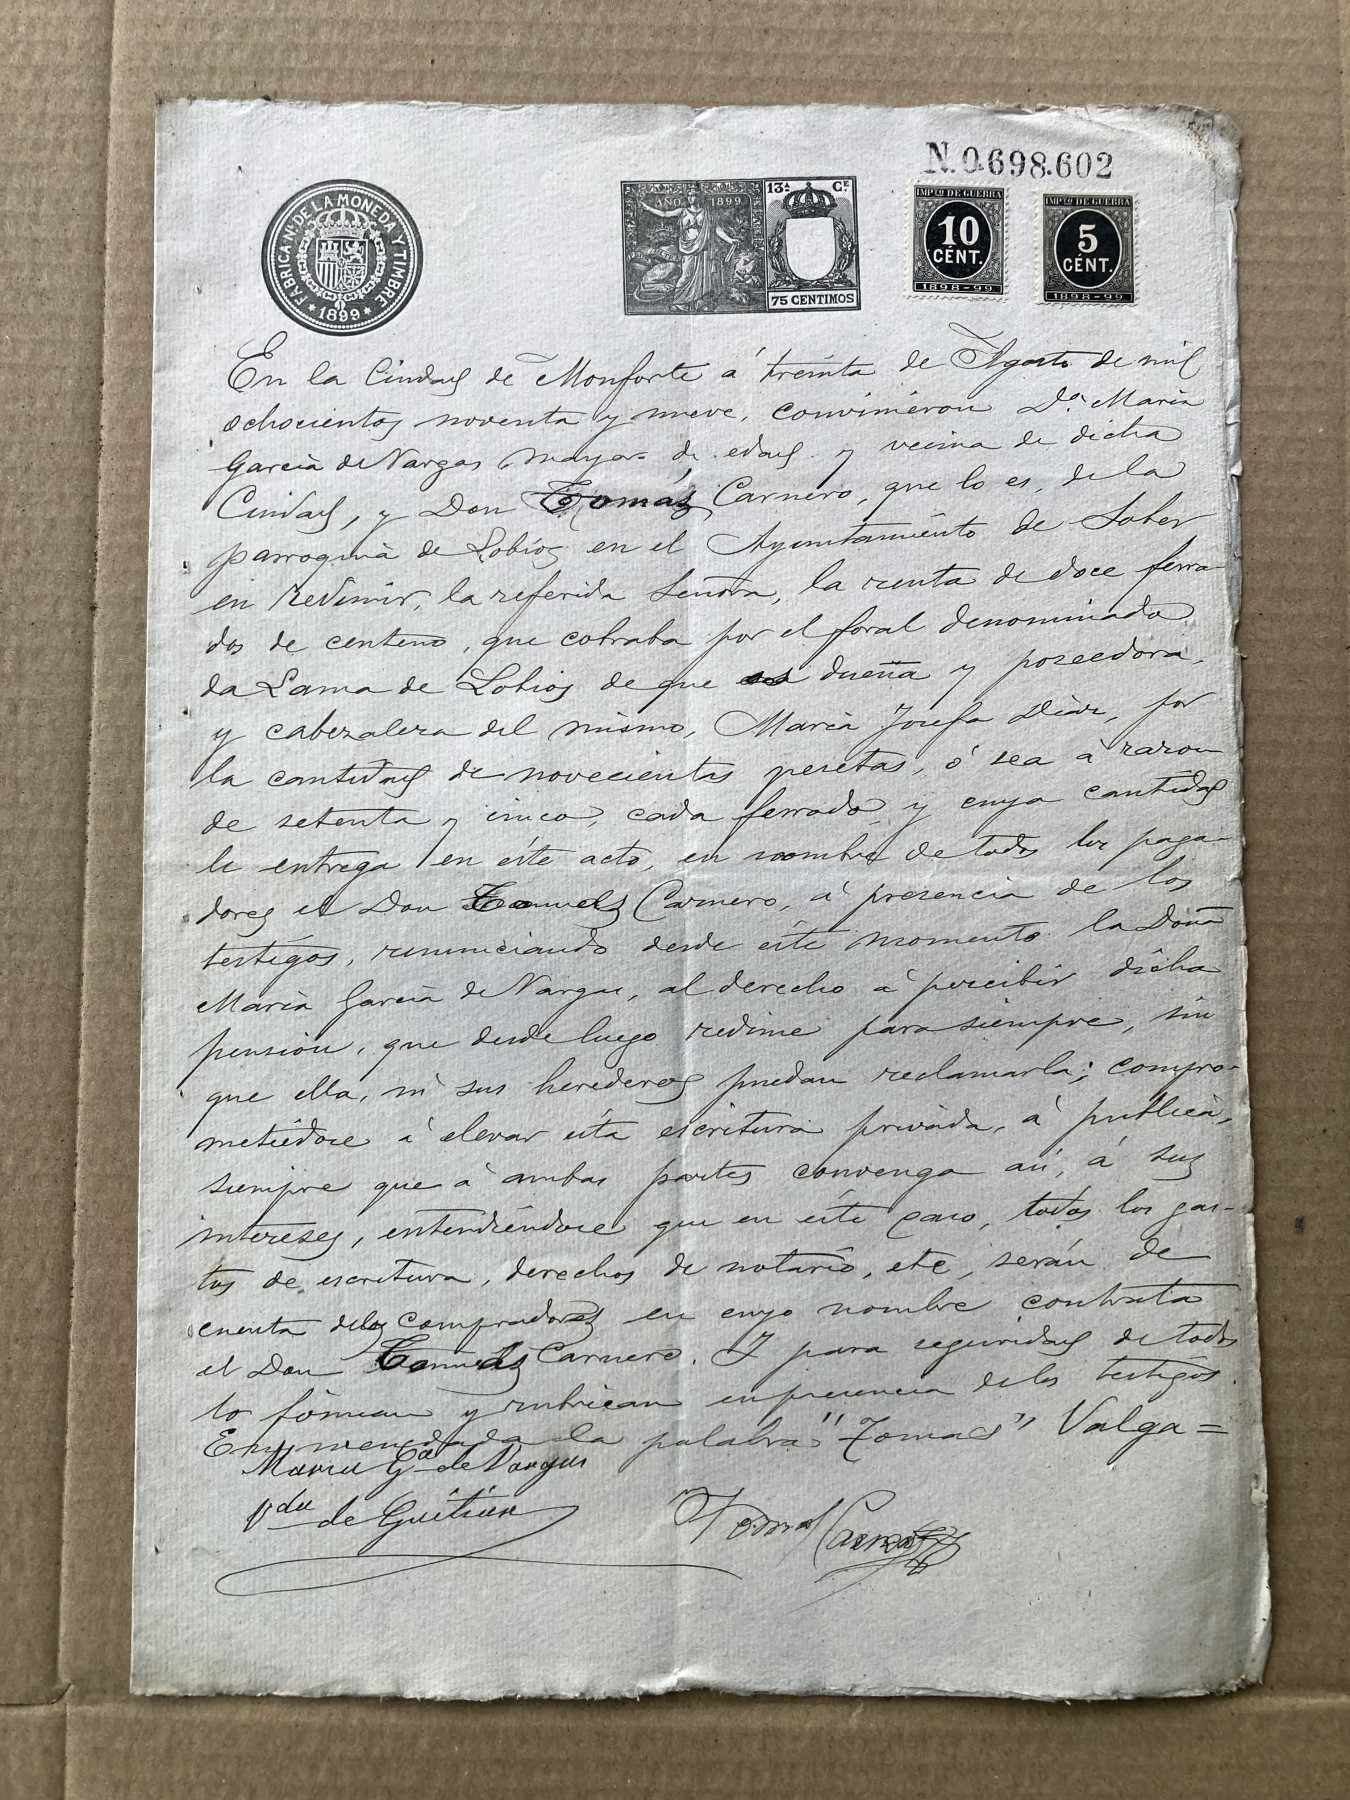 N. 0.698.602
FABRICA NL. DE LA MONEDA Y TIMBRE
* 1899 *
AÑO 1899
13ª CE.
75 CENTIMOS
IMPTO DE GUERRA
10
CÉNT.
1898-99
IMPTO DE GUERRA
5
CÉNT.
1898-99
En la Ciudad de Monforte á treinta de Agosto de mil
ochocientos noventa y nueve, convinieron Dª María
García de Vargas mayor de edad y vecina de dicha
Ciudad, y Don Tomás Carnero, que lo es, de la
parroquia de Lobios en el Ayuntamiento de Sober
en redimir, la referida Señora, la renta de doce ferra-
dos de centeno, que cobraba por el foral denominado
da Lama de Lobios de que es dueña y poseedora,
y cabezalera del mismo, María Josefa Diaz, por
la cantidad de novecientas pesetas, ó sea á razon
de setenta y cinco, cada ferrado, y cuya cantidad
le entrega en éste acto, en nombre de todos los paga-
dores el Don Carnero, á presencia de los
testigos, renunciando desde éste momento la Doña
María García de Vargas, al derecho á percibir dicha
pension, que desde luego redime para siempre, sin
que ella, ni sus herederos puedan reclamarla; compro-
metiédose á elevar ésta escritura privada, á publica,
siempre que á ambas partes convenga así, á sus
intereses, entendiéndose que en éste caso, todos los gas-
tos de escritura, derechos de notario, etc, serán de
cuenta delos compradores en cuyo nombre contrata
el Don Carnero. Y para seguridad de todos
lo firman y rubrican en presencia de los testigos.
Enmendada la palabra "Tomas" Valga=
Maria Gª de Vargas
Vda de Guitian
Tomas Carnero